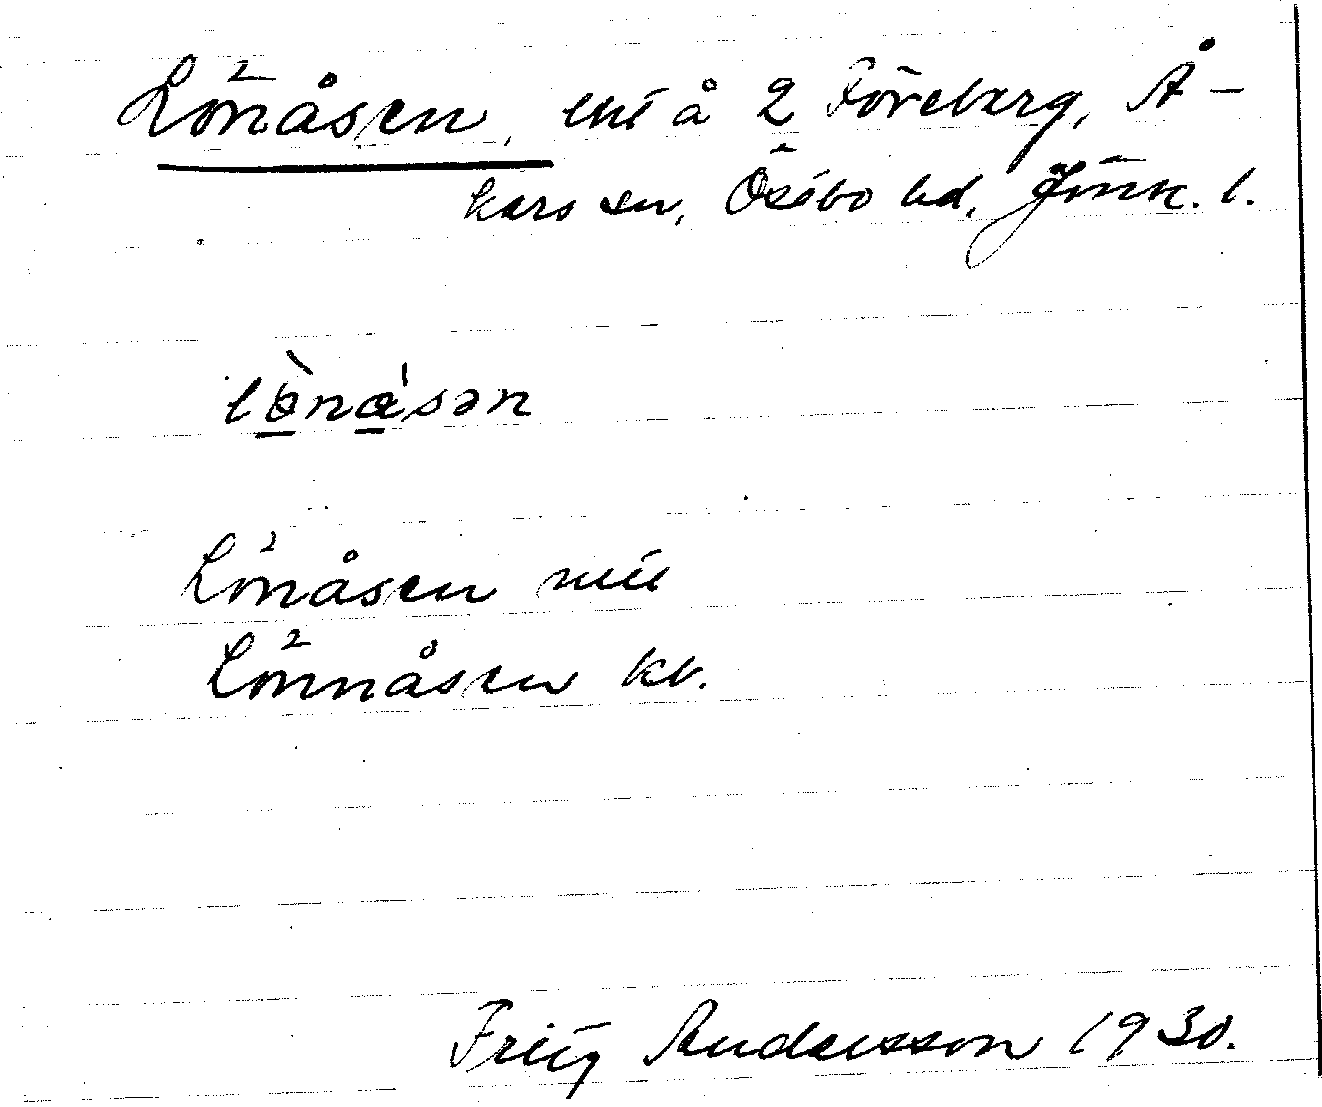 Lönåsen, lht å 2 Föreberg, Å-
kers sn, Östbo hd, Jönk. l.
lònåsən
Lönåsen mtl
Lönnåsen kb.
Fritz Andersson 1930.